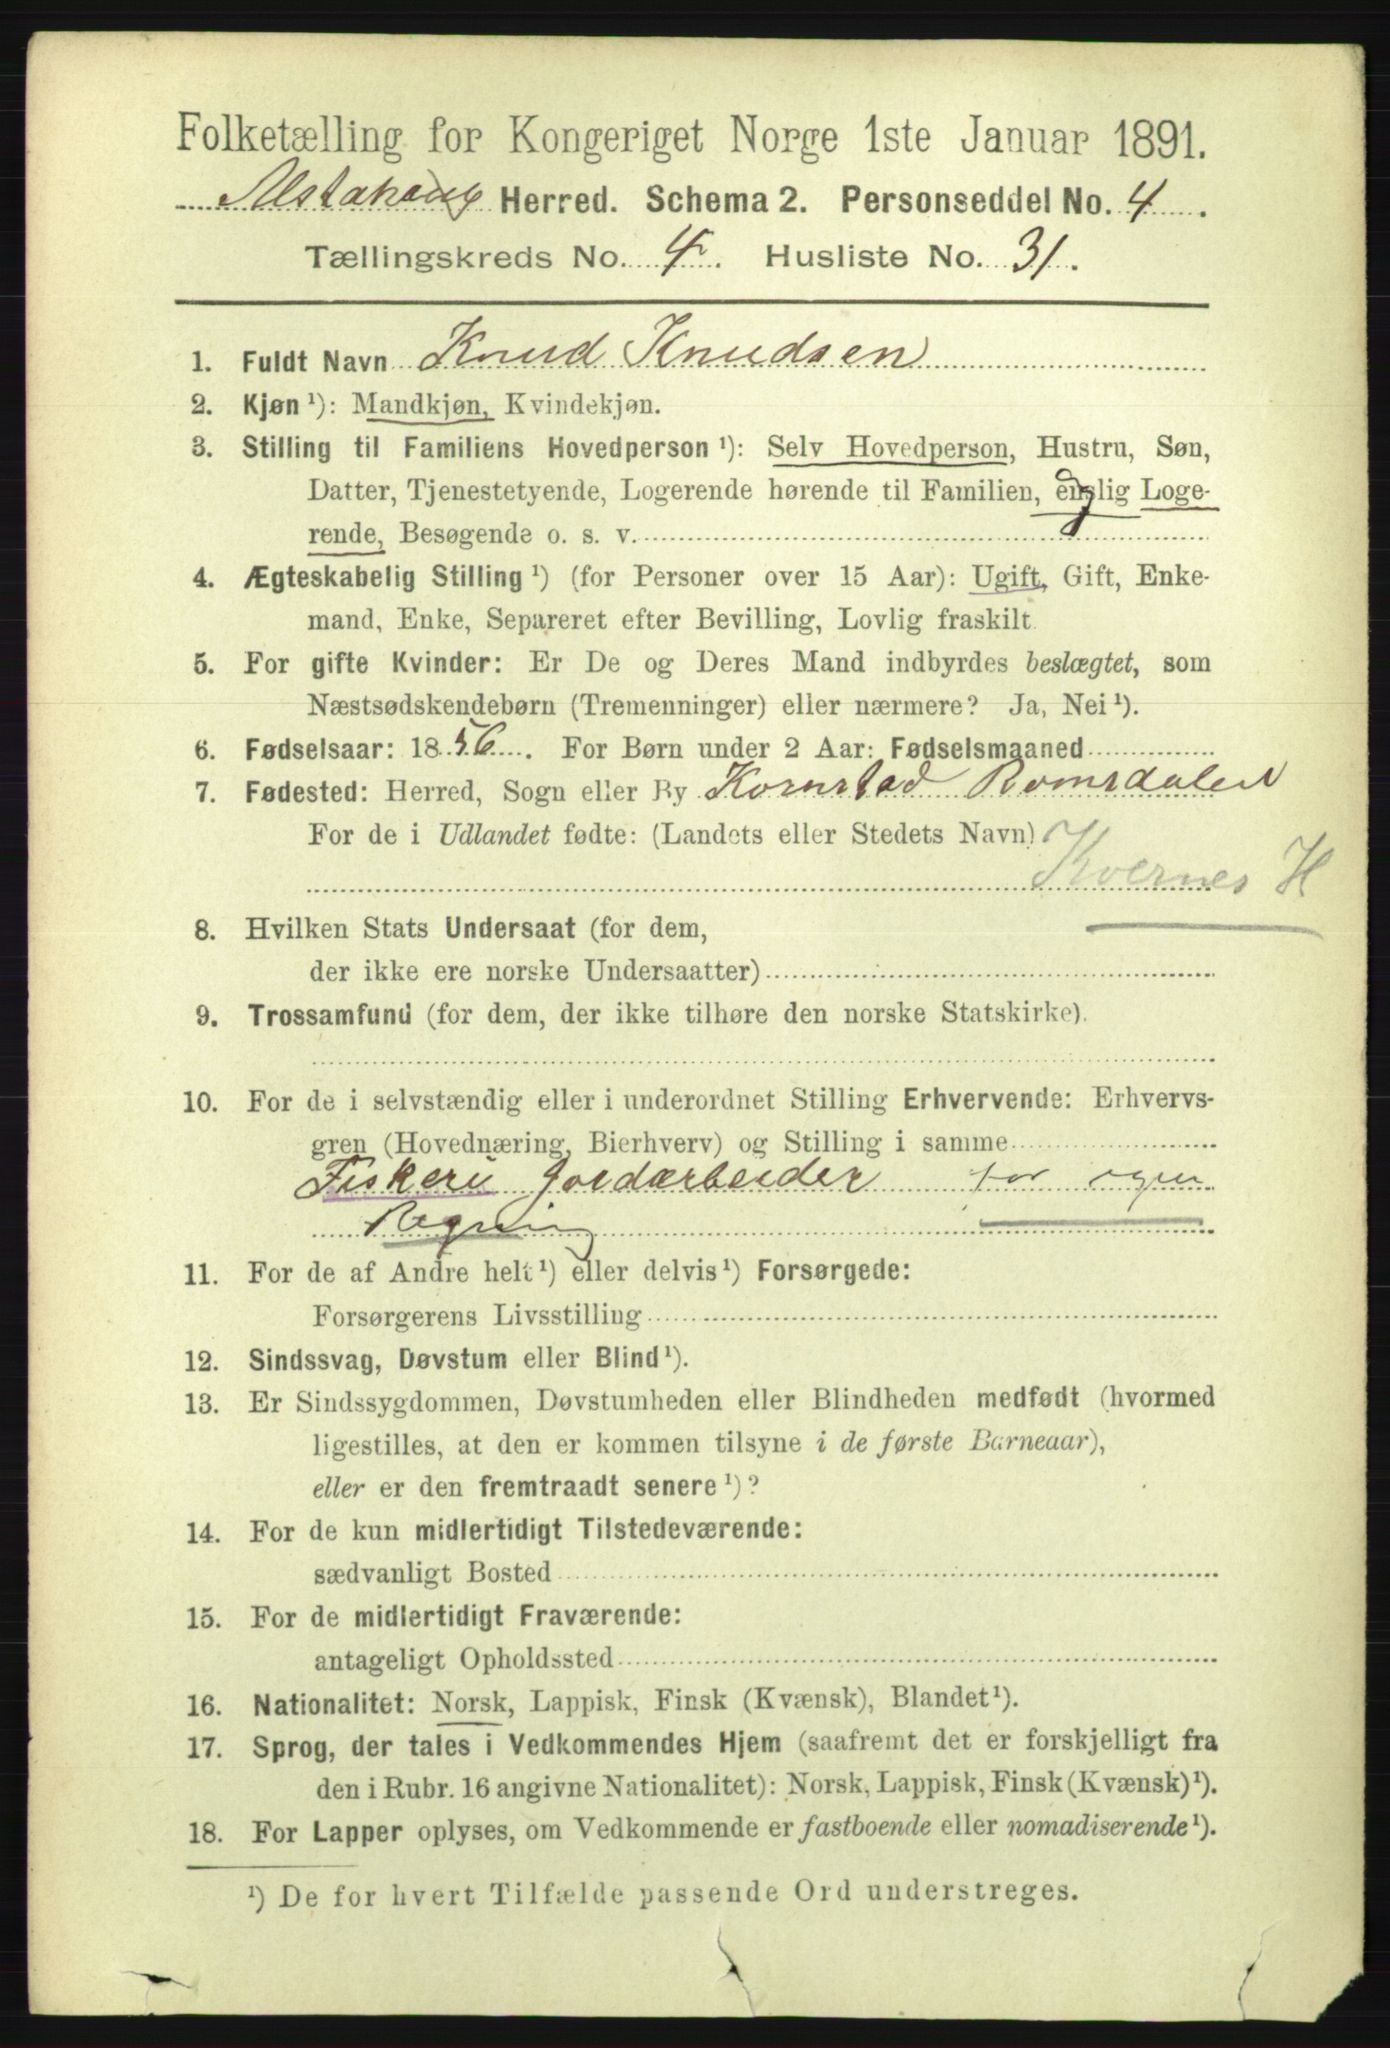 Folketælling for Kongeriget Norge 1ste Januar 1891.
Alstahaug Herred. Schema 2. Personseddel No. 4.
Tællingskreds No. 4. Husliste No. 31.
1. Fuldt Navn Knud Knudsen
2. Kjøn ¹): Mandkjøn, Kvindekjøn.
3. Stilling til Familiens Hovedperson ¹): Selv Hovedperson, Hustru, Søn,
Datter, Tjenestetyende, Logerende hørende til Familien, enslig Loge-
rende, Besøgende o. s. v.
4. Ægteskabelig Stilling ¹) (for Personer over 15 Aar): Ugift, Gift, Enke-
mand, Enke, Separeret efter Bevilling, Lovlig fraskilt.
5. For gifte Kvinder: Er De og Deres Mand indbyrdes beslægtet, som
Næstsødskendebørn (Tremenninger) eller nærmere? Ja, Nei ¹).
6. Fødselsaar: 1856. For Børn under 2 Aar: Fødselsmaaned
7. Fødested: Herred, Sogn eller By Kornstad Romsdalen
For de i Udlandet fødte: (Landets eller Stedets Navn)
Kvernes H
8. Hvilken Stats Undersaat (for dem,
der ikke ere norske Undersaatter)
9. Trossamfund (for dem, der ikke tilhøre den norske Statskirke).
10. For de i selvstændig eller i underordnet Stilling Erhvervende: Erhvervs-
gren (Hovednæring, Bierhverv) og Stilling i samme
Fiskeri Jordarbeider for egen
Regning
11. For de af Andre helt ¹) eller delvis ¹) Forsørgede:
Forsørgerens Livsstilling
12. Sindssvag, Døvstum eller Blind ¹).
13. Er Sindssygdommen, Døvstumheden eller Blindheden medfødt (hvormed
ligestilles, at den er kommen tilsyne i de første Barneaar),
eller er den fremtraadt senere ¹)?
14. For de kun midlertidigt Tilstedeværende:
sædvanligt Bosted
15. For de midlertidigt Fraværende:
antageligt Opholdssted
16. Nationalitet: Norsk, Lappisk, Finsk (Kvænsk), Blandet ¹).
17. Sprog, der tales i Vedkommendes Hjem (saafremt det er forskjelligt fra
den i Rubr. 16 angivne Nationalitet): Norsk, Lappisk, Finsk (Kvænsk) ¹).
18. For Lapper oplyses, om Vedkommende er fastboende eller nomadiserende ¹).
¹) De for hvert Tilfælde passende Ord understreges.